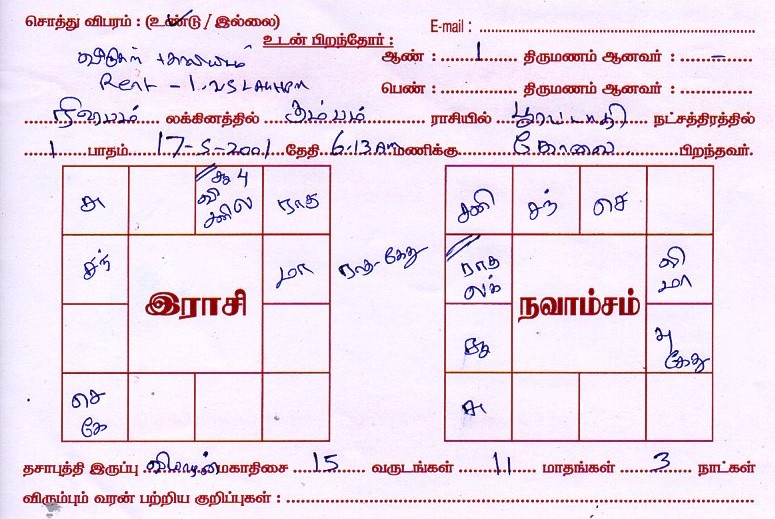 சொத்து விபரம் : (உண்டு / இல்லை)
E-mail :
உடன் பிறந்தோர் :
ஆண் : 1 திருமணம் ஆனவர் : –
Rent - 1.25 Lakhs
பெண் : திருமணம் ஆனவர் :
லக்கினத்தில் கும்பம் ராசியில் பூரட்டாதி நட்சத்திரத்தில்
1 பாதம் 17-5-2001 தேதி 6.13 AM மணிக்கு கோவை பிறந்தவர்.
சு
சந்
செ
கே
ராகு
மா
இராசி
ராகு-கேது
சனி
சந்
செ
ராகு
லக்
வி
மா
சூ
சு
நவாம்சம்
பு
கேது
தசாபுத்தி இருப்பு வியாழன் மகாதிசை 15 வருடங்கள் 11 மாதங்கள் 3 நாட்கள்
விரும்பும் வரன் பற்றிய குறிப்புகள் :